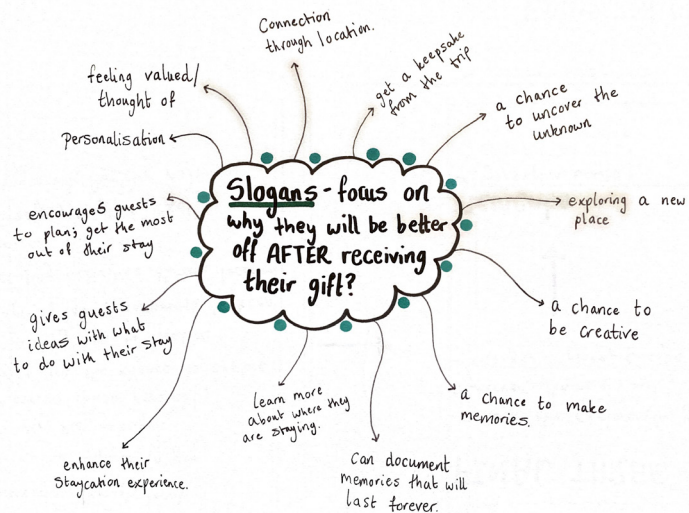 Slogans - focus on
why they will be better
off AFTER receiving
their gift?
Connection
through location.
get a keepsake
from the trip
a chance
to uncover the
unknown
exploring a new
place
a chance to
be creative
a chance to make
memories.
Can document
memories that will
last forever.
Learn more
about where they
are staying.
enhance their
Staycation experience.
gives guests
ideas with what
to do with their stay
encourages guests
to plan; get the most
out of their stay
Personalisation
feeling valued/
thought of